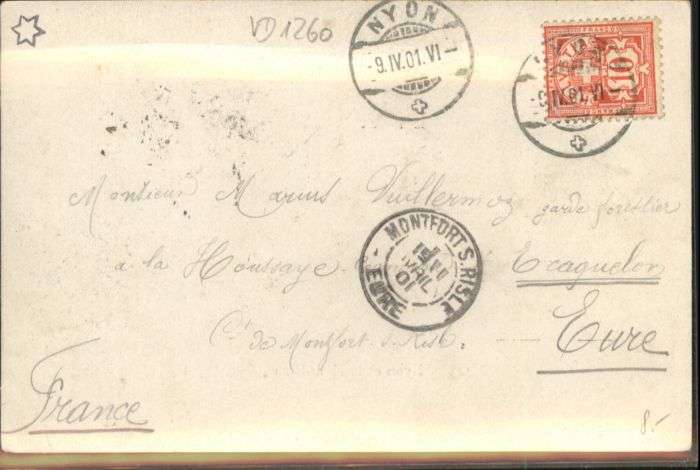 VD 1260
NYON
-9.IV.01.VI-
-9.IV.01.VI-
FRANCO
10
Monsieur Marius Vuillermoz garde forestier
à la Houssaye Ecaquelon
MONTFORT S. RISLE
AVRIL
01
EURE
Cⁿ de Montfort s. Risle. Eure
France
8.-